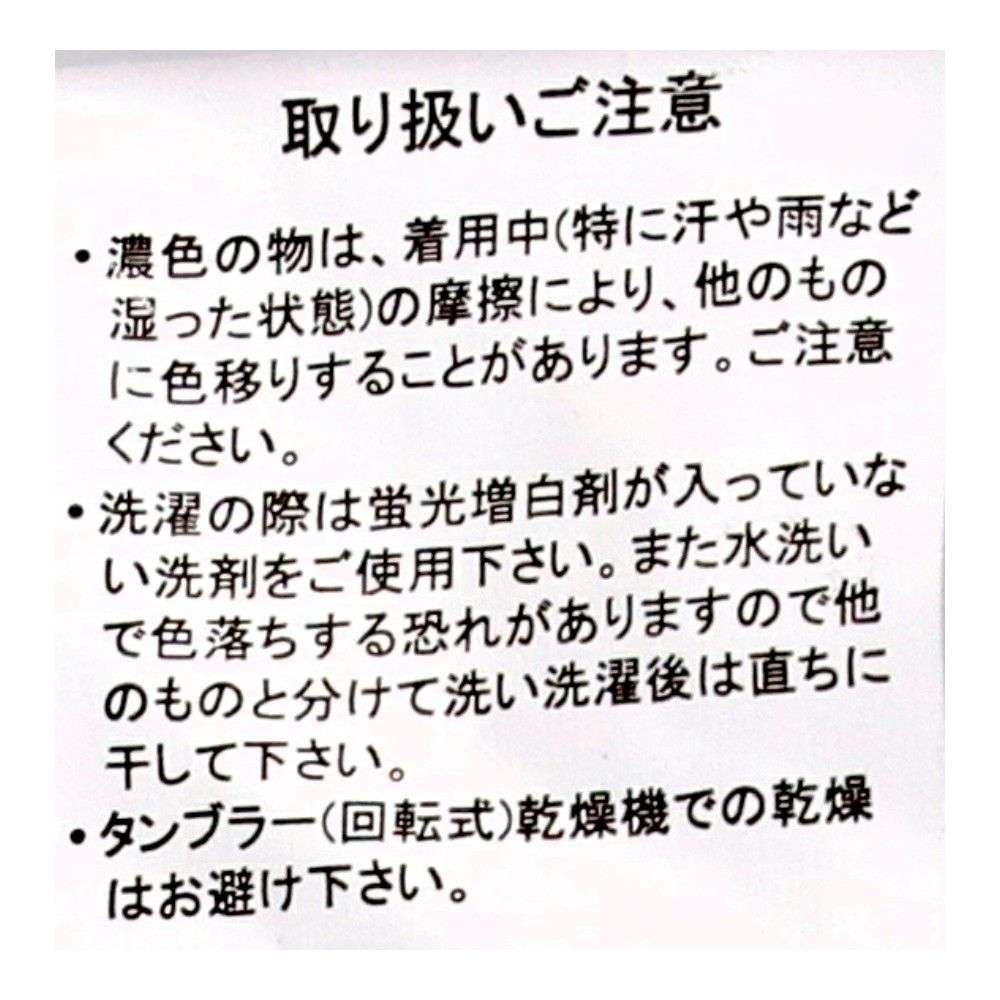 取り扱いご注意
・濃色の物は、着用中(特に汗や雨など
湿った状態)の摩擦により、他のもの
に色移りすることがあります。ご注意
ください。
・洗濯の際は蛍光増白剤が入っていな
い洗剤をご使用下さい。また水洗い
で色落ちする恐れがありますので他
のものと分けて洗い洗濯後は直ちに
干して下さい。
・タンブラー(回転式)乾燥機での乾燥
はお避け下さい。